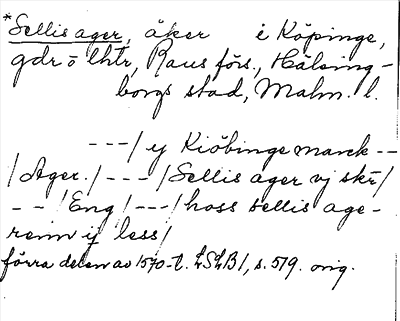 *Sellis ager, åker i Köpinge,
gdr o lhtr, Raus förs., Hälsing-
borgs stad, Malm. l.
---/ ij Kiöbinge marck --
/Ager./ --- /Sellis ager vj skr/
-- /Eng/ --- /hoss sellis age-
renn ij less/
förra delen av 1570-t. LSLB1, s. 579. orig.